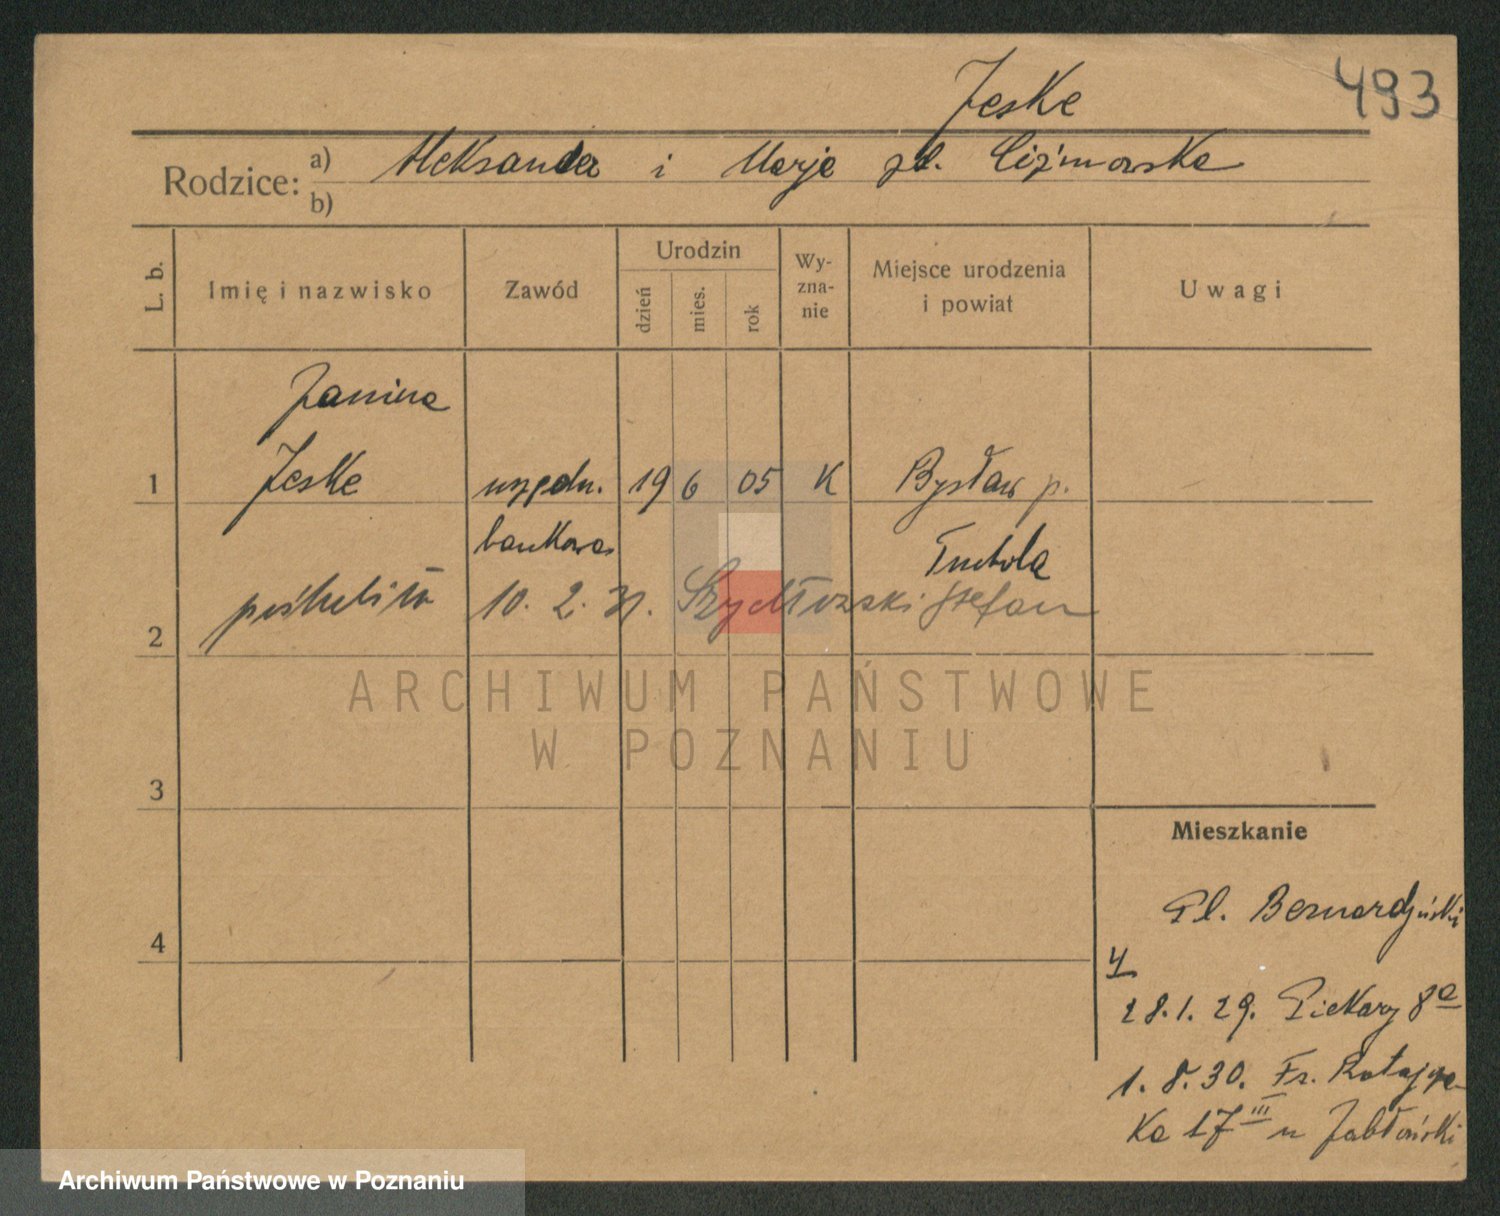 Jeske
493
Rodzice: a) Aleksander i Marja zd. Ciżmowska
b)
L. b. Imię i nazwisko Zawód Urodzin dzień mies. rok Wy-zna-nie Miejsce urodzenia i powiat Uwagi
Janina
1 Jeske urzędn. 19 6 05 K Bysław p.
bankowa Tuchola
2 poślubiła 10. 2. 31. Szydłowski Stefan
ARCHIWUM PAŃSTWOWE
W POZNANIU
3
Mieszkanie
Pl. Bernardyński
4
4
28.1.29. Piekary 8a
1.8.30. Fr. Ratajcza-
ka 17 III u Jabłoński
Archiwum Państwowe w Poznaniu